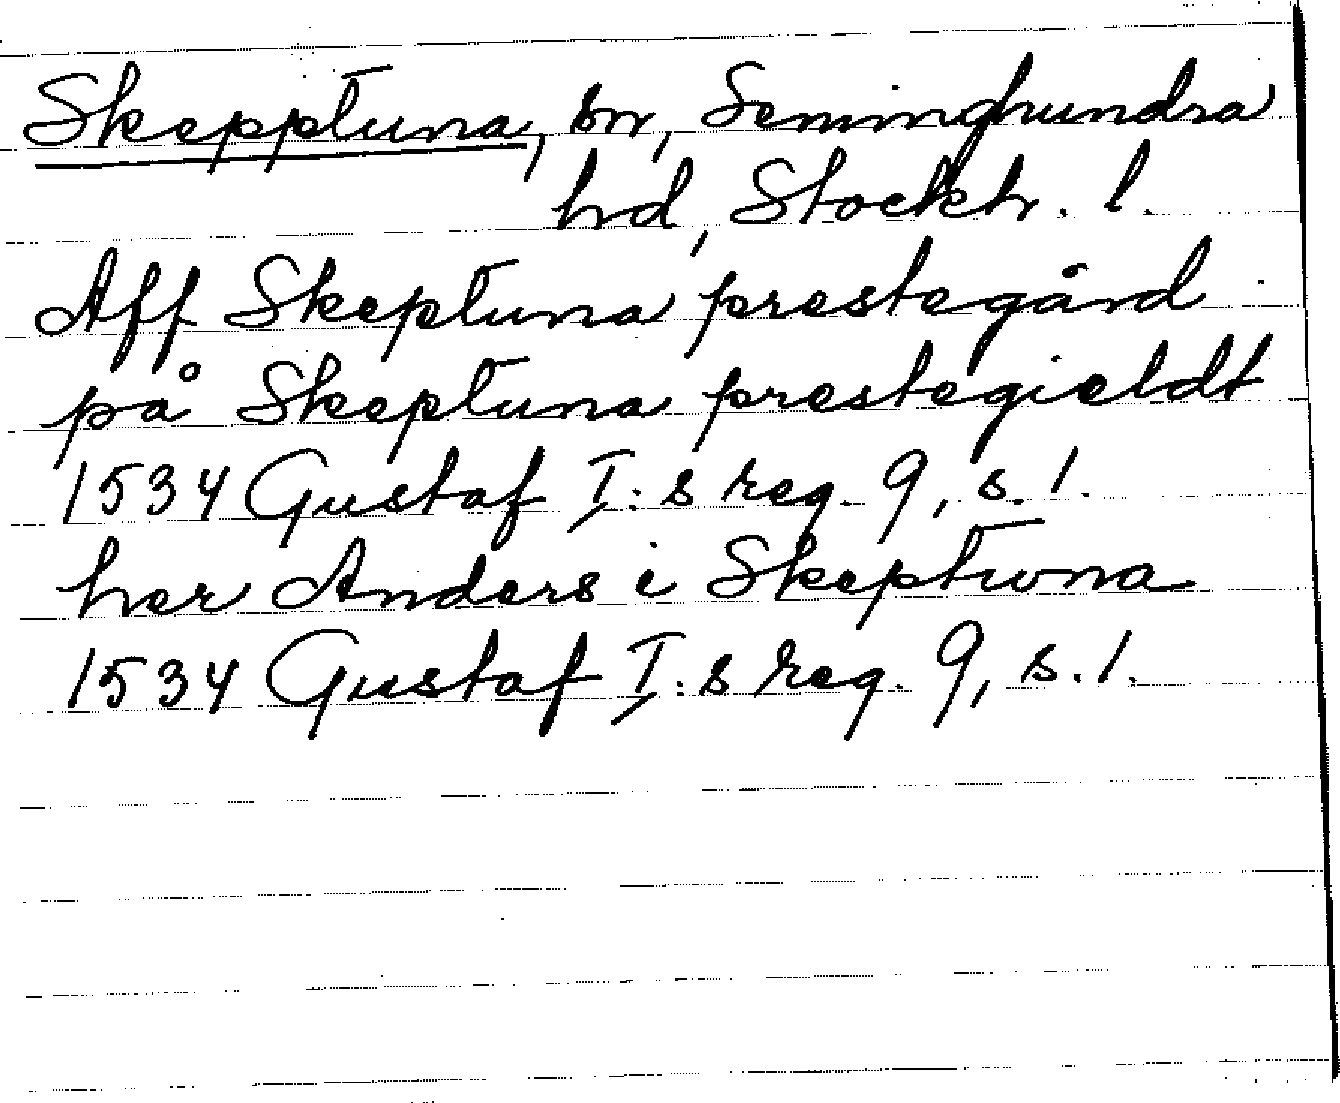 Skepptuna, sn, Seminghundra
hd, Stockh. l.
Aff Skeptuna prestegård
på Skeptuna prestegieldt
1534 Gustaf I:s reg. 9, s. 1.
her Anders i Skeptwna
1534 Gustaf I:s reg. 9, s. 1.